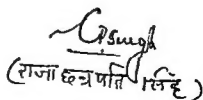 CPSingh
(राजा छत्रपति सिंह)